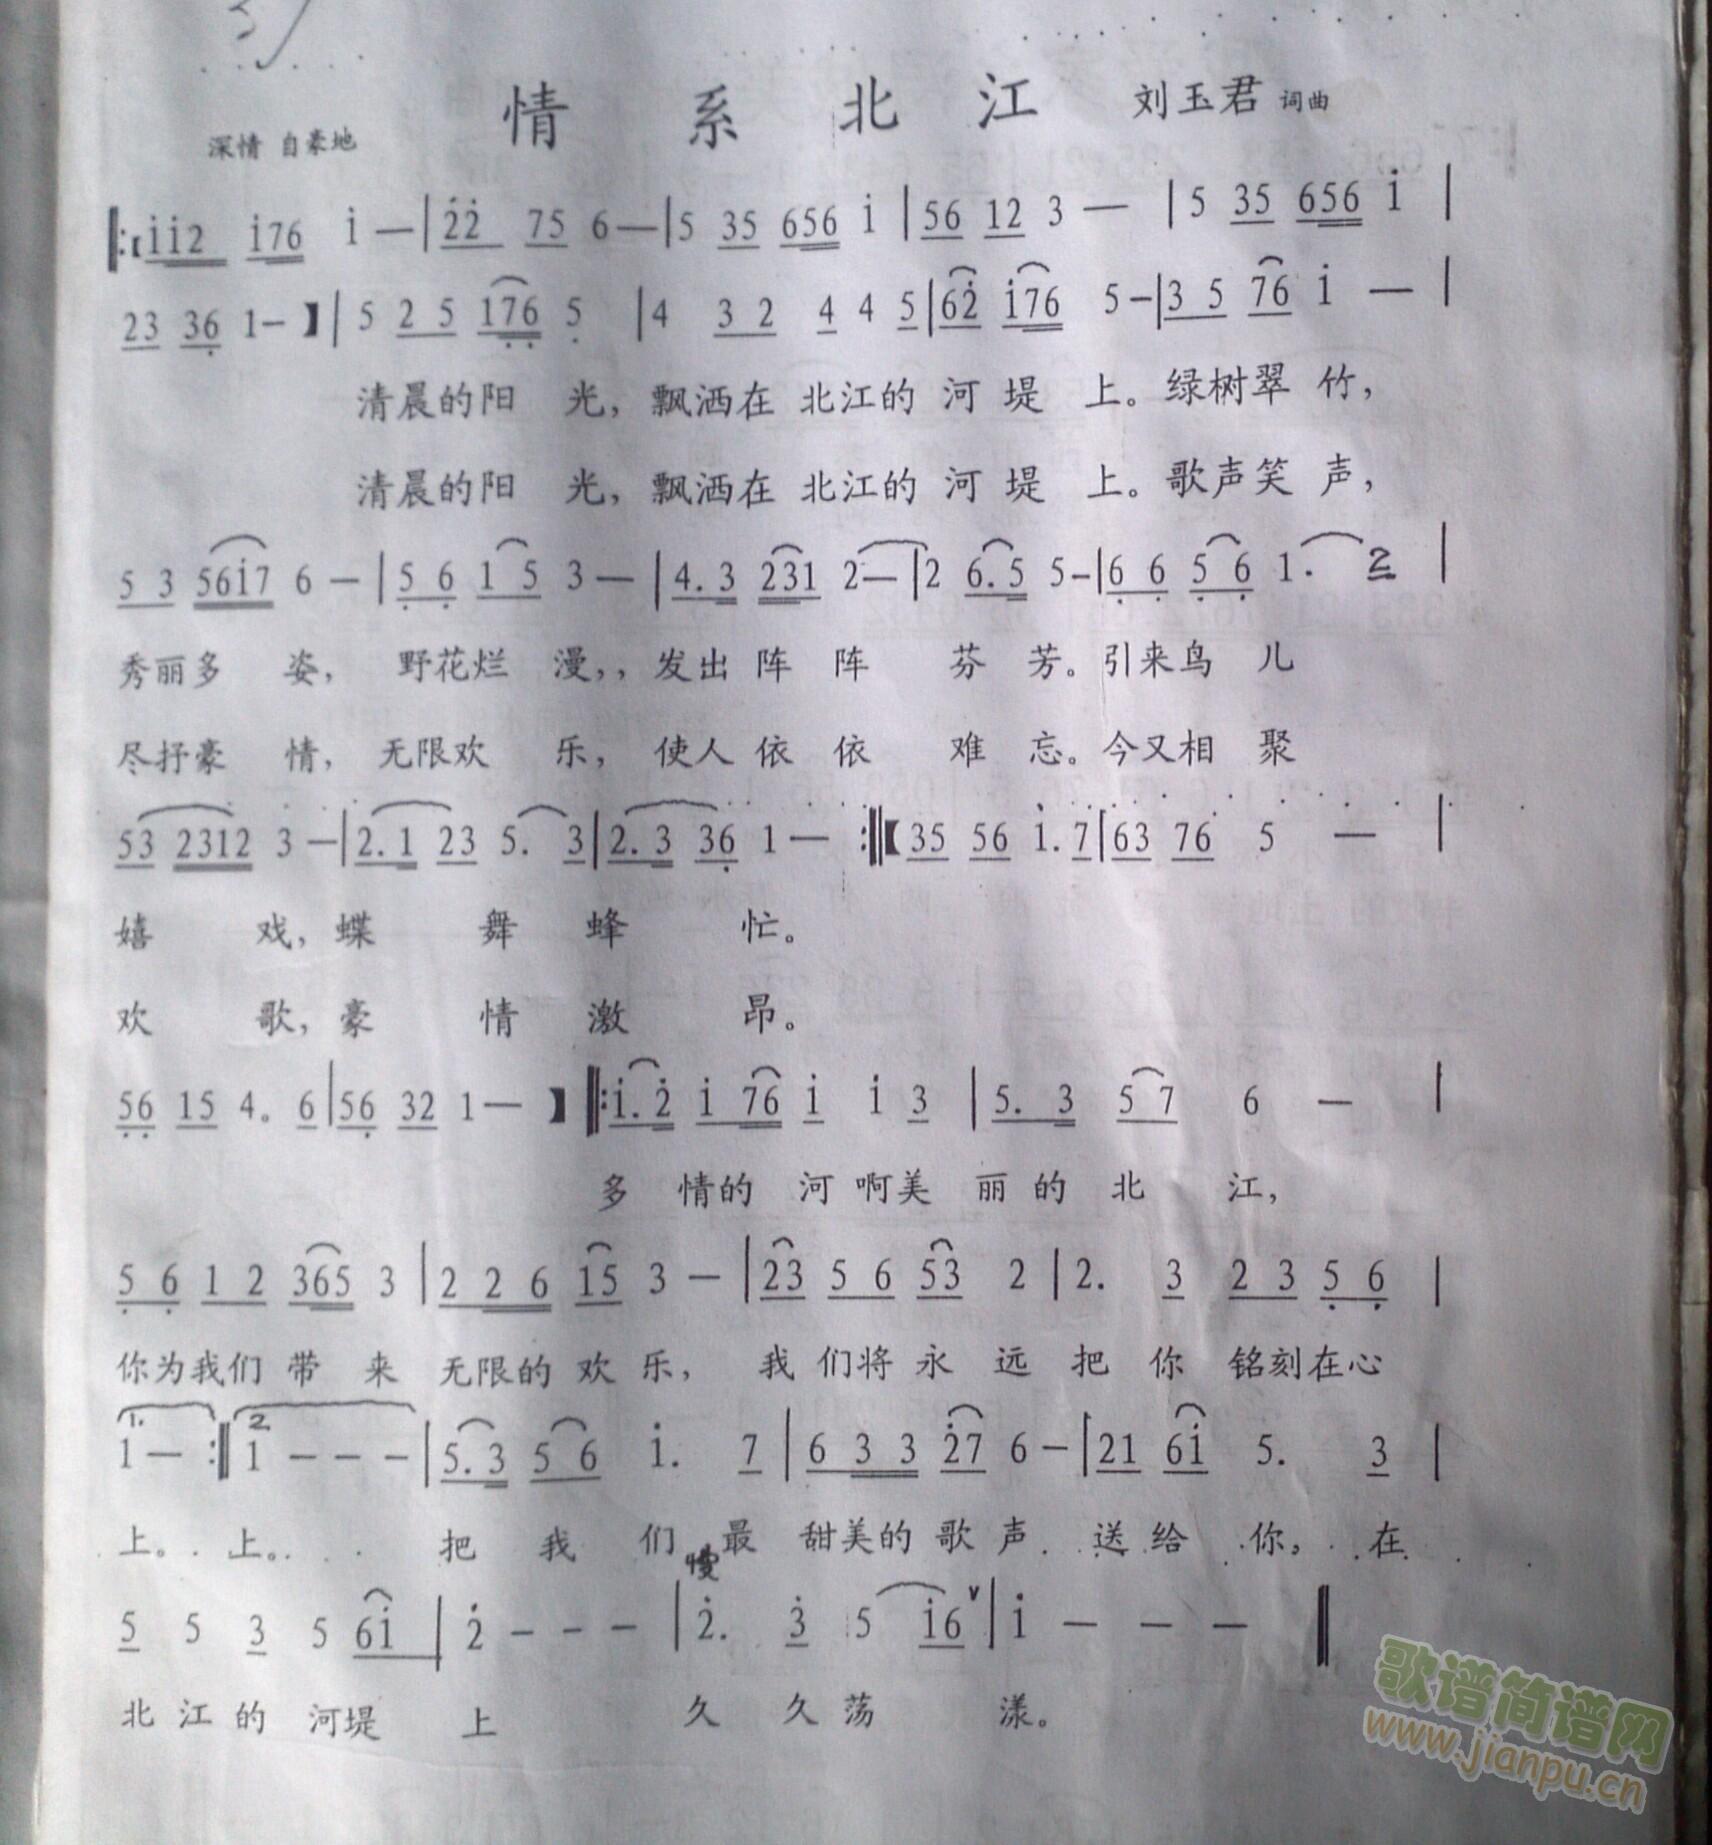 情 系 北 江 刘玉君 词曲
深情 自豪地
‖:【i̇i̇2 i̇76 i̇ — | 2̇2̇ 75 6 — | 5 35 656 i̇ | 56 12 3 — | 5 35 656 i̇ |
23 36̣ 1 — 】| 5 2 5 17̣6̣ 5̣ | 4 3 2 4 4 5 | 62̇ i̇76 5 — | 3 5 76 i̇ — |
清晨的阳 光，飘洒在 北江的 河 堤 上。绿树翠 竹，
清晨的阳 光，飘洒在 北江的 河 堤 上。歌声笑 声，
5 3 56i̇7 6 — | 5̣ 6̣ 1 5 3 — | 4. 3 231 2 — | 2 6. 5 5 — | 6̣ 6̣ 5̣ 6̣ 1. 2 |
秀丽多 姿， 野花烂 漫，，发出 阵 阵 芬 芳。引来鸟 儿
尽抒豪 情， 无限欢 乐， 使人 依 依 难 忘。今又相 聚
53 2312 3 — | 2. 1 23 5. 3 | 2. 3 36̣ 1 — :‖【35 56 i̇. 7 | 63 76 5 — |
嬉 戏，蝶 舞 蜂 忙。
欢 歌，豪 情 激 昂。
5̣6̣ 15 4. 6 | 56̣ 32 1 — 】‖: i̇. 2̇ i̇ 76 i̇ i̇ 3 | 5. 3 5 7 6 — |
多 情的 河 啊美 丽 的 北 江，
5̣ 6̣ 1 2 365 3 | 2 2 6 15 3 — | 23 5 6 53 2 | 2. 3 2 3 5̣ 6̣ |
你为我们 带 来 无限的 欢 乐， 我 们将 永 远 把 你 铭刻在心
1. 2.
1 — :‖ 1 — — — | 5. 3 5 6 i̇. 7 | 6 3 3 2̇7 6 — | 21 6i̇ 5. 3 |
上。 上。 把 我 们 最 甜美的 歌 声 送 给 你， 在
慢
5 5 3 5 6i̇ | 2̇ — — — | 2̇. 3̇ 5 i̇6 ∨ | i̇ — — — ‖
北 江 的 河堤 上 久 久 荡 漾。
歌谱简谱网
www.jianpu.cn